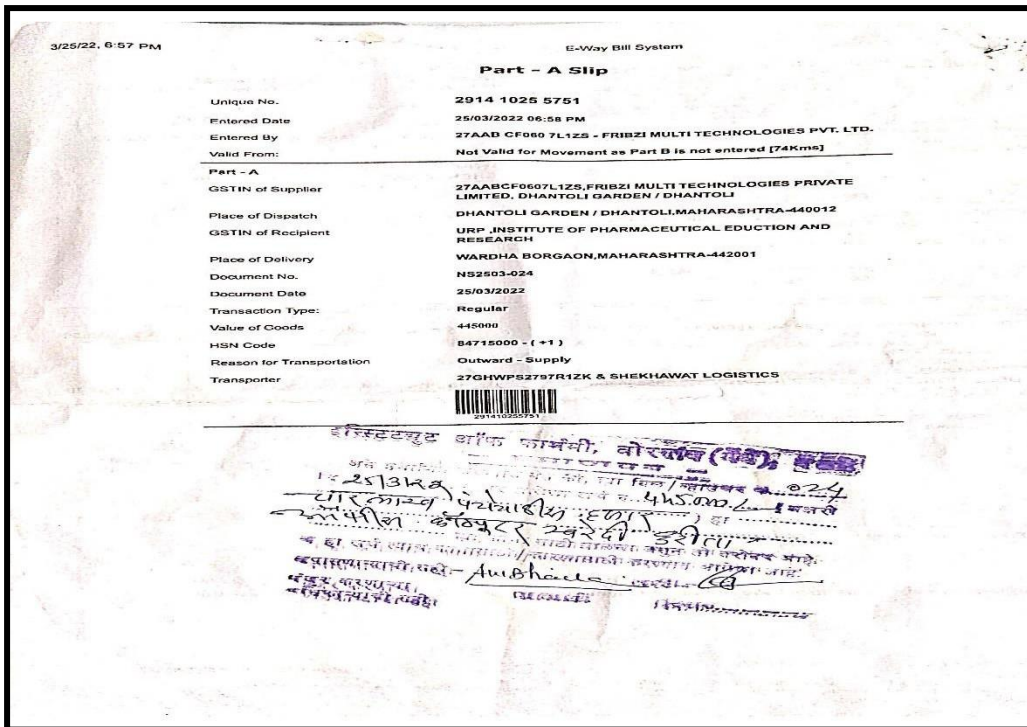 3/25/22, 6:57 PM
E-Way Bill System
Part - A Slip
Unique No. 2914 1025 5751
Entered Date 25/03/2022 06:58 PM
Entered By 27AAB CF060 7L1ZS - FRIBZI MULTI TECHNOLOGIES PVT. LTD.
Valid From: Not Valid for Movement as Part B is not entered [74Kms]
Part - A
GSTIN of Supplier 27AABCF0607L1ZS,FRIBZI MULTI TECHNOLOGIES PRIVATE
LIMITED, DHANTOLI GARDEN / DHANTOLI
Place of Dispatch DHANTOLI GARDEN / DHANTOLI,MAHARASHTRA-440012
GSTIN of Recipient URP ,INSTITUTE OF PHARMACEUTICAL EDUCTION AND
RESEARCH
Place of Delivery WARDHA BORGAON,MAHARASHTRA-442001
Document No. NS2503-024
Document Date 25/03/2022
Transaction Type: Regular
Value of Goods 445000
HSN Code 84715000 - ( +1 )
Reason for Transportation Outward - Supply
Transporter 27GHWPS2797R1ZK & SHEKHAWAT LOGISTICS
291410255751
इन्स्टिटयुट ऑफ फार्मसी, बोरगांव (मेघे),
024
25/3/22 445000/-
चार लाख पंचेचाळीस हजार
ऑफीस कॉम्पुटर खरेदी करीता